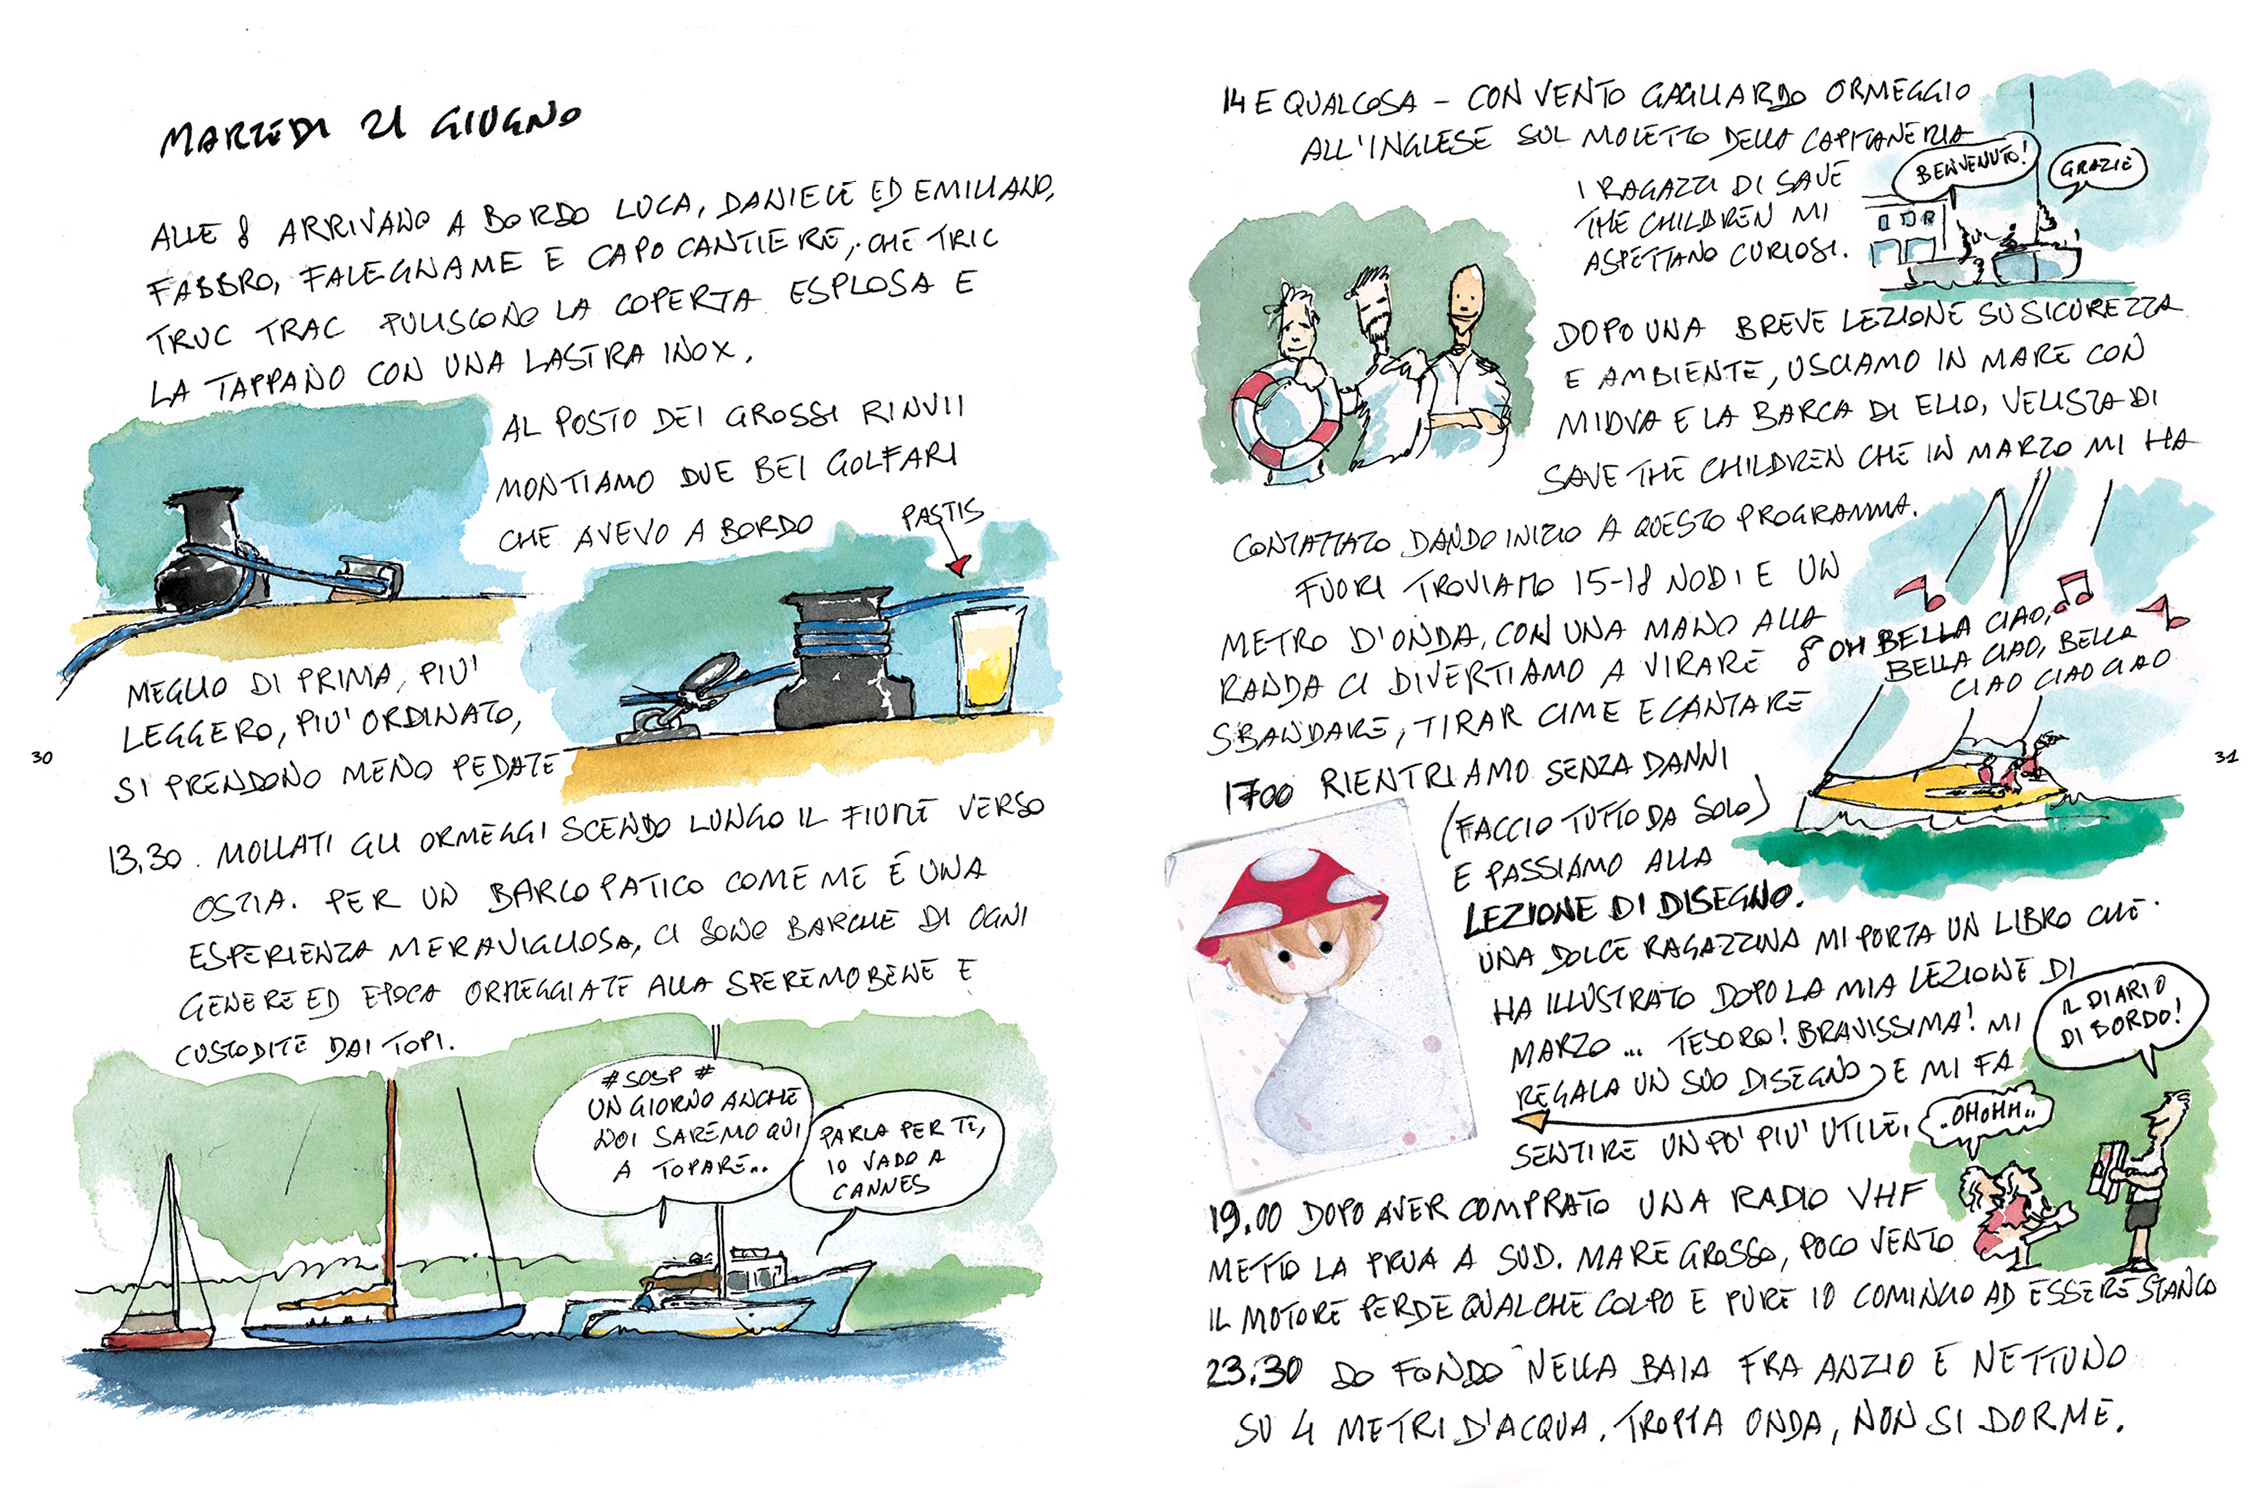 MARTEDI 21 GIUGNO
ALLE 8 ARRIVANO A BORDO LUCA, DANIELE ED EMILIANO,
FABBRO, FALEGNAME E CAPO CANTIERE, CHE TRIC
TRUC TRAC PULISCONO LA COPERTA ESPLOSA E
LA TAPPANO CON UNA LASTRA INOX.
AL POSTO DEI GROSSI RINVII
MONTIAMO DUE BEI GOLFARI
CHE AVEVO A BORDO
PASTIS
MEGLIO DI PRIMA, PIU'
LEGGERO, PIU' ORDINATO,
SI PRENDONO MENO PEDATE
30
13.30. MOLLATI GLI ORMEGGI SCENDO LUNGO IL FIUME VERSO
OSTIA. PER UN BARCOPATICO COME ME É UNA
ESPERIENZA MERAVIGLIOSA, CI SONO BARCHE DI OGNI
GENERE ED EPOCA ORMEGGIATE ALLA SPEREMOBENE E
CUSTODITE DAI TOPI.
#SOSP#
UN GIORNO ANCHE
NOI SAREMO QUI
A TOPARE..
PARLA PER TE,
IO VADO A
CANNES
14 E QUALCOSA - CON VENTO GAGLIARDO ORMEGGIO
ALL'INGLESE SUL MOLETTO DELLA CAPITANERIA
BENVENUTO!
GRAZIE
I RAGAZZI DI SAVE
THE CHILDREN MI
ASPETTANO CURIOSI.
DOPO UNA BREVE LEZIONE SU SICUREZZA
E AMBIENTE, USCIAMO IN MARE CON
MIDVA E LA BARCA DI ELIO, VELISTA DI
SAVE THE CHILDREN CHE IN MARZO MI HA
CONTATTATO DANDO INIZIO A QUESTO PROGRAMMA.
FUORI TROVIAMO 15-18 NODI E UN
METRO D'ONDA, CON UNA MANO ALLA
RANDA CI DIVERTIAMO A VIRARE
SBANDARE, TIRAR CIME E CANTARE
OH BELLA CIAO,
BELLA CIAO, BELLA
CIAO CIAO CIAO
1700 RIENTRIAMO SENZA DANNI
(FACCIO TUTTO DA SOLO)
E PASSIAMO ALLA
LEZIONE DI DISEGNO.
31
UNA DOLCE RAGAZZINA MI PORTA UN LIBRO CHE
HA ILLUSTRATO DOPO LA MIA LEZIONE DI
MARZO ... TESORO! BRAVISSIMA! MI
REGALA UN SUO DISEGNO E MI FA
SENTIRE UN PO' PIU' UTILE.
IL DIARIO
DI BORDO!
..OHOHH..
19.00 DOPO AVER COMPRATO UNA RADIO VHF
METTO LA PRUA A SUD. MARE GROSSO, POCO VENTO
IL MOTORE PERDE QUALCHE COLPO E PURE IO COMINCIO AD ESSERE STANCO
23.30 DO FONDO NELLA BAIA FRA ANZIO E NETTUNO
SU 4 METRI D'ACQUA. TROPPA ONDA, NON SI DORME.